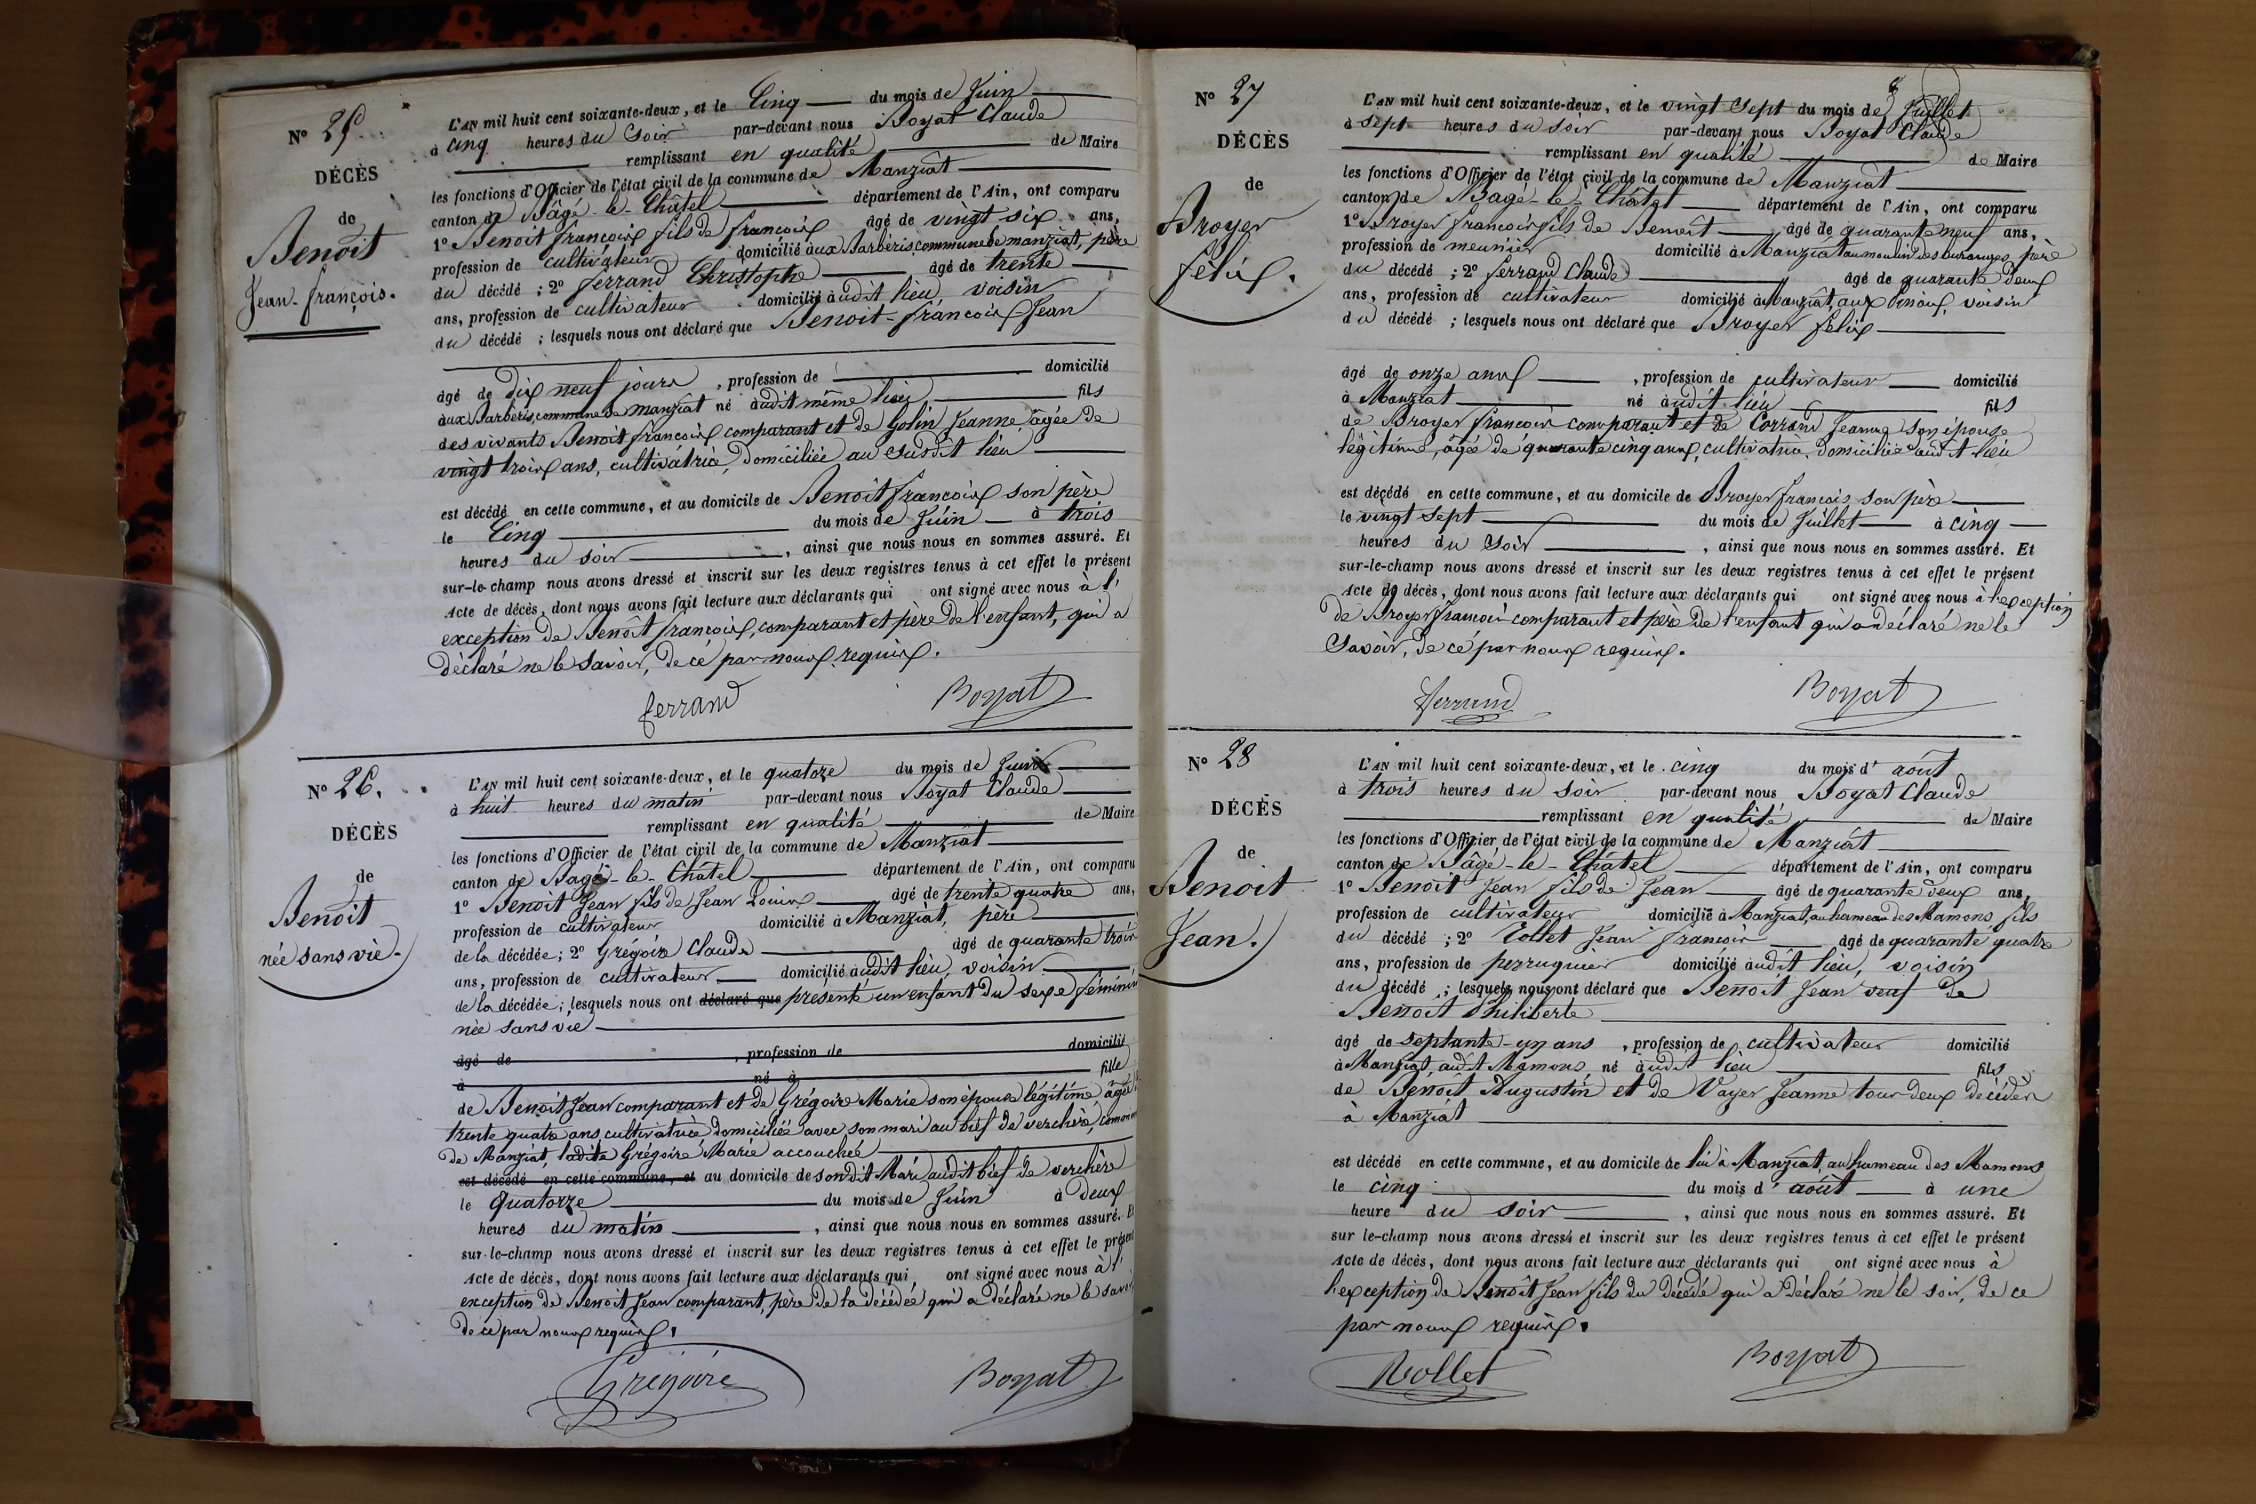 N° 25.
DÉCÈS
de
Benoit
Jean-françois.
L'AN mil huit cent soixante-deux, et le Cinq du mois de Juin
à cinq heures du soir par-devant nous Boyat Claude
remplissant en qualité de Maire
les fonctions d'Officier de l'état civil de la commune de Manziat
canton de Bâgé-le-Châtel département de l'Ain, ont comparu
1° Benoit françois fils de françois âgé de vingt six ans,
profession de cultivateur domicilié aux Barbéris, commune de manziat, père
du décédé ; 2° ferrand Christophe âgé de trente
ans, profession de cultivateur domicilié audit lieu voisin
du décédé ; lesquels nous ont déclaré que Benoit-françois Jean
âgé de dix neuf jours, profession de domicilié
aux Barbéris, commune de manziat né audit même lieu fils
des vivants Benoit françois comparant et de Golin Jeanne, âgée de
vingt trois ans, cultivatrice, domiciliée au susdit lieu
est décédé en cette commune, et au domicile de Benoit françois son père
le Cinq du mois de Juin à trois
heures du soir, ainsi que nous nous en sommes assuré. Et
sur-le-champ nous avons dressé et inscrit sur les deux registres tenus à cet effet le présent
Acte de décès, dont nous avons fait lecture aux déclarants qui ont signé avec nous à l'
exception de Benoit françois, comparant et père de l'enfant, qui a
déclaré ne le savoir, de ce par nous requis.
ferrand Boyat
N° 26.
DÉCÈS
de
Benoit
née sans vie.
L'AN mil huit cent soixante-deux, et le quatorze du mois de Juin
à huit heures du matin par-devant nous Boyat Claude
remplissant en qualité de Maire
les fonctions d'Officier de l'état civil de la commune de Manziat
canton de Bagé-le-Châtel département de l'Ain, ont comparu
1° Benoit Jean fils de Jean Louis âgé de trente quatre ans,
profession de cultivateur domicilié à Manziat, père
de la décédée ; 2° Grégoire Claude âgé de quarante trois
ans, profession de cultivateur domicilié audit lieu, voisin
de la décédée ; lesquels nous ont déclaré que présenté un enfant du sexe féminin
née sans vie
âgé de, profession de domicilié
à né à fille
de Benoit Jean comparant et de Grégoire Marie son épouse légitime âgée de
trente quatre ans cultivatrice domiciliée avec son mari au bief de verchère, commune
de Manziat, ladite Grégoire Marie accouchée
est décédé en cette commune, et au domicile de son dit Mari audit bief de verchère
le quatorze du mois de Juin à deux
heures du matin, ainsi que nous nous en sommes assuré. Et
sur-le-champ nous avons dressé et inscrit sur les deux registres tenus à cet effet le présent
Acte de décès, dont nous avons fait lecture aux déclarants qui ont signé avec nous à l'
exception de Benoit Jean comparant, père de la décédée qui a déclaré ne le savoir
de ce par nous requis.
Grégoire Boyat
N° 27
DÉCÈS
de
Broyer
félix.
L'AN mil huit cent soixante-deux, et le vingt sept du mois de Juillet
à sept heures du soir par-devant nous Boyat Claude
remplissant en qualité de Maire
les fonctions d'Officier de l'état civil de la commune de Manziat
canton de Bagé-le-Châtel département de l'Ain, ont comparu
1° Broyer françois fils de Benoit âgé de quarante neuf ans,
profession de meunier domicilié à Manziat au moulin des père
du décédé ; 2° ferrand Claude âgé de quarante deux
ans, profession de cultivateur domicilié à Manziat, aux voisin
du décédé ; lesquels nous ont déclaré que Broyer félix
âgé de onze ans, profession de cultivateur domicilié
à Manziat né audit lieu fils
de Broyer françois comparant et de Corrand Jeanne son épouse
légitime, âgée de quarante cinq ans, cultivatrice, domiciliée audit lieu
est décédé en cette commune, et au domicile de Broyer françois son père
le vingt sept du mois de Juillet à cinq
heures du soir, ainsi que nous nous en sommes assuré. Et
sur-le-champ nous avons dressé et inscrit sur les deux registres tenus à cet effet le présent
Acte de décès, dont nous avons fait lecture aux déclarants qui ont signé avec nous à l'exception
de Broyer françois comparant et père de l'enfant qui a déclaré ne le
savoir, de ce par nous requis.
ferrand Boyat
N° 28
DÉCÈS
de
Benoit
Jean.
L'AN mil huit cent soixante-deux, et le cinq du mois d'août
à trois heures du soir par-devant nous Boyat Claude
remplissant en qualité de Maire
les fonctions d'Officier de l'état civil de la commune de Manziat
canton de Bâgé-le-Châtel département de l'Ain, ont comparu
1° Benoit Jean fils de Jean âgé de quarante deux ans,
profession de cultivateur domicilié à Manziat, au hameau des Mamons, fils
du décédé ; 2° Jean françois âgé de quarante quatre
ans, profession de perruquier domicilié audit lieu, voisin
du décédé ; lesquels nous ont déclaré que Benoit Jean veuf de
Benoit Philiberte
âgé de septante-un ans, profession de cultivateur domicilié
à Manziat, audit Mamons, né audit lieu fils
de Benoit Augustin et de Vayer Jeanne tous deux décédés
à Manziat
est décédé en cette commune, et au domicile de lui à Manziat, au hameau des Mamons
le cinq du mois d'août à une
heure du soir, ainsi que nous nous en sommes assuré. Et
sur le-champ nous avons dressé et inscrit sur les deux registres tenus à cet effet le présent
Acte de décès, dont nous avons fait lecture aux déclarants qui ont signé avec nous à
l'exception de Benoit Jean fils du décédé qui a déclaré ne le soir, de ce
par nous requis.
Boyat